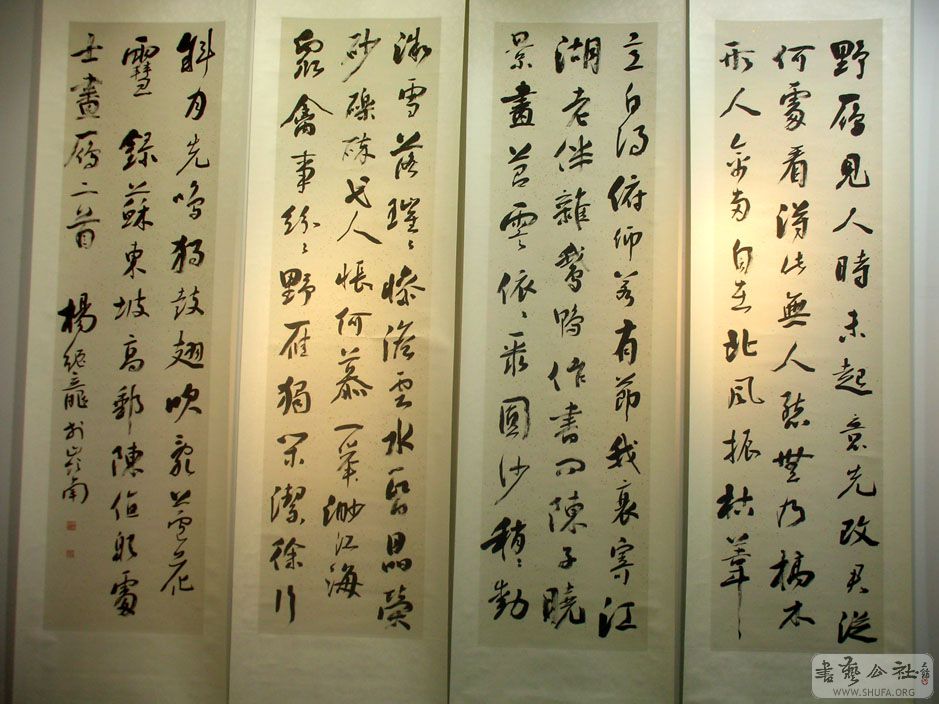 野鴈見人時未起意先改君從
何處看得此無人態無乃槁木
形人禽兩自在北風振枯葦
意自得俯仰若有節我衰寄江
湖老伴雜鵝鴨作書問陳子曉
景畫苕霅依〻聚圓沙稍〻動
微雪落璀〻慘澹雲水昏晶熒
砂礫碎弋人悵何慕一舉渺江海
眾禽事紛〻野雁獨閑潔徐行
斜月先鳴獨鼓翅吹亂蘆花
雪 錄蘇東坡高郵陳直躬處
士畫鴈二首 楊龍於嶺南
書藝公社
WWW.SHUFA.ORG